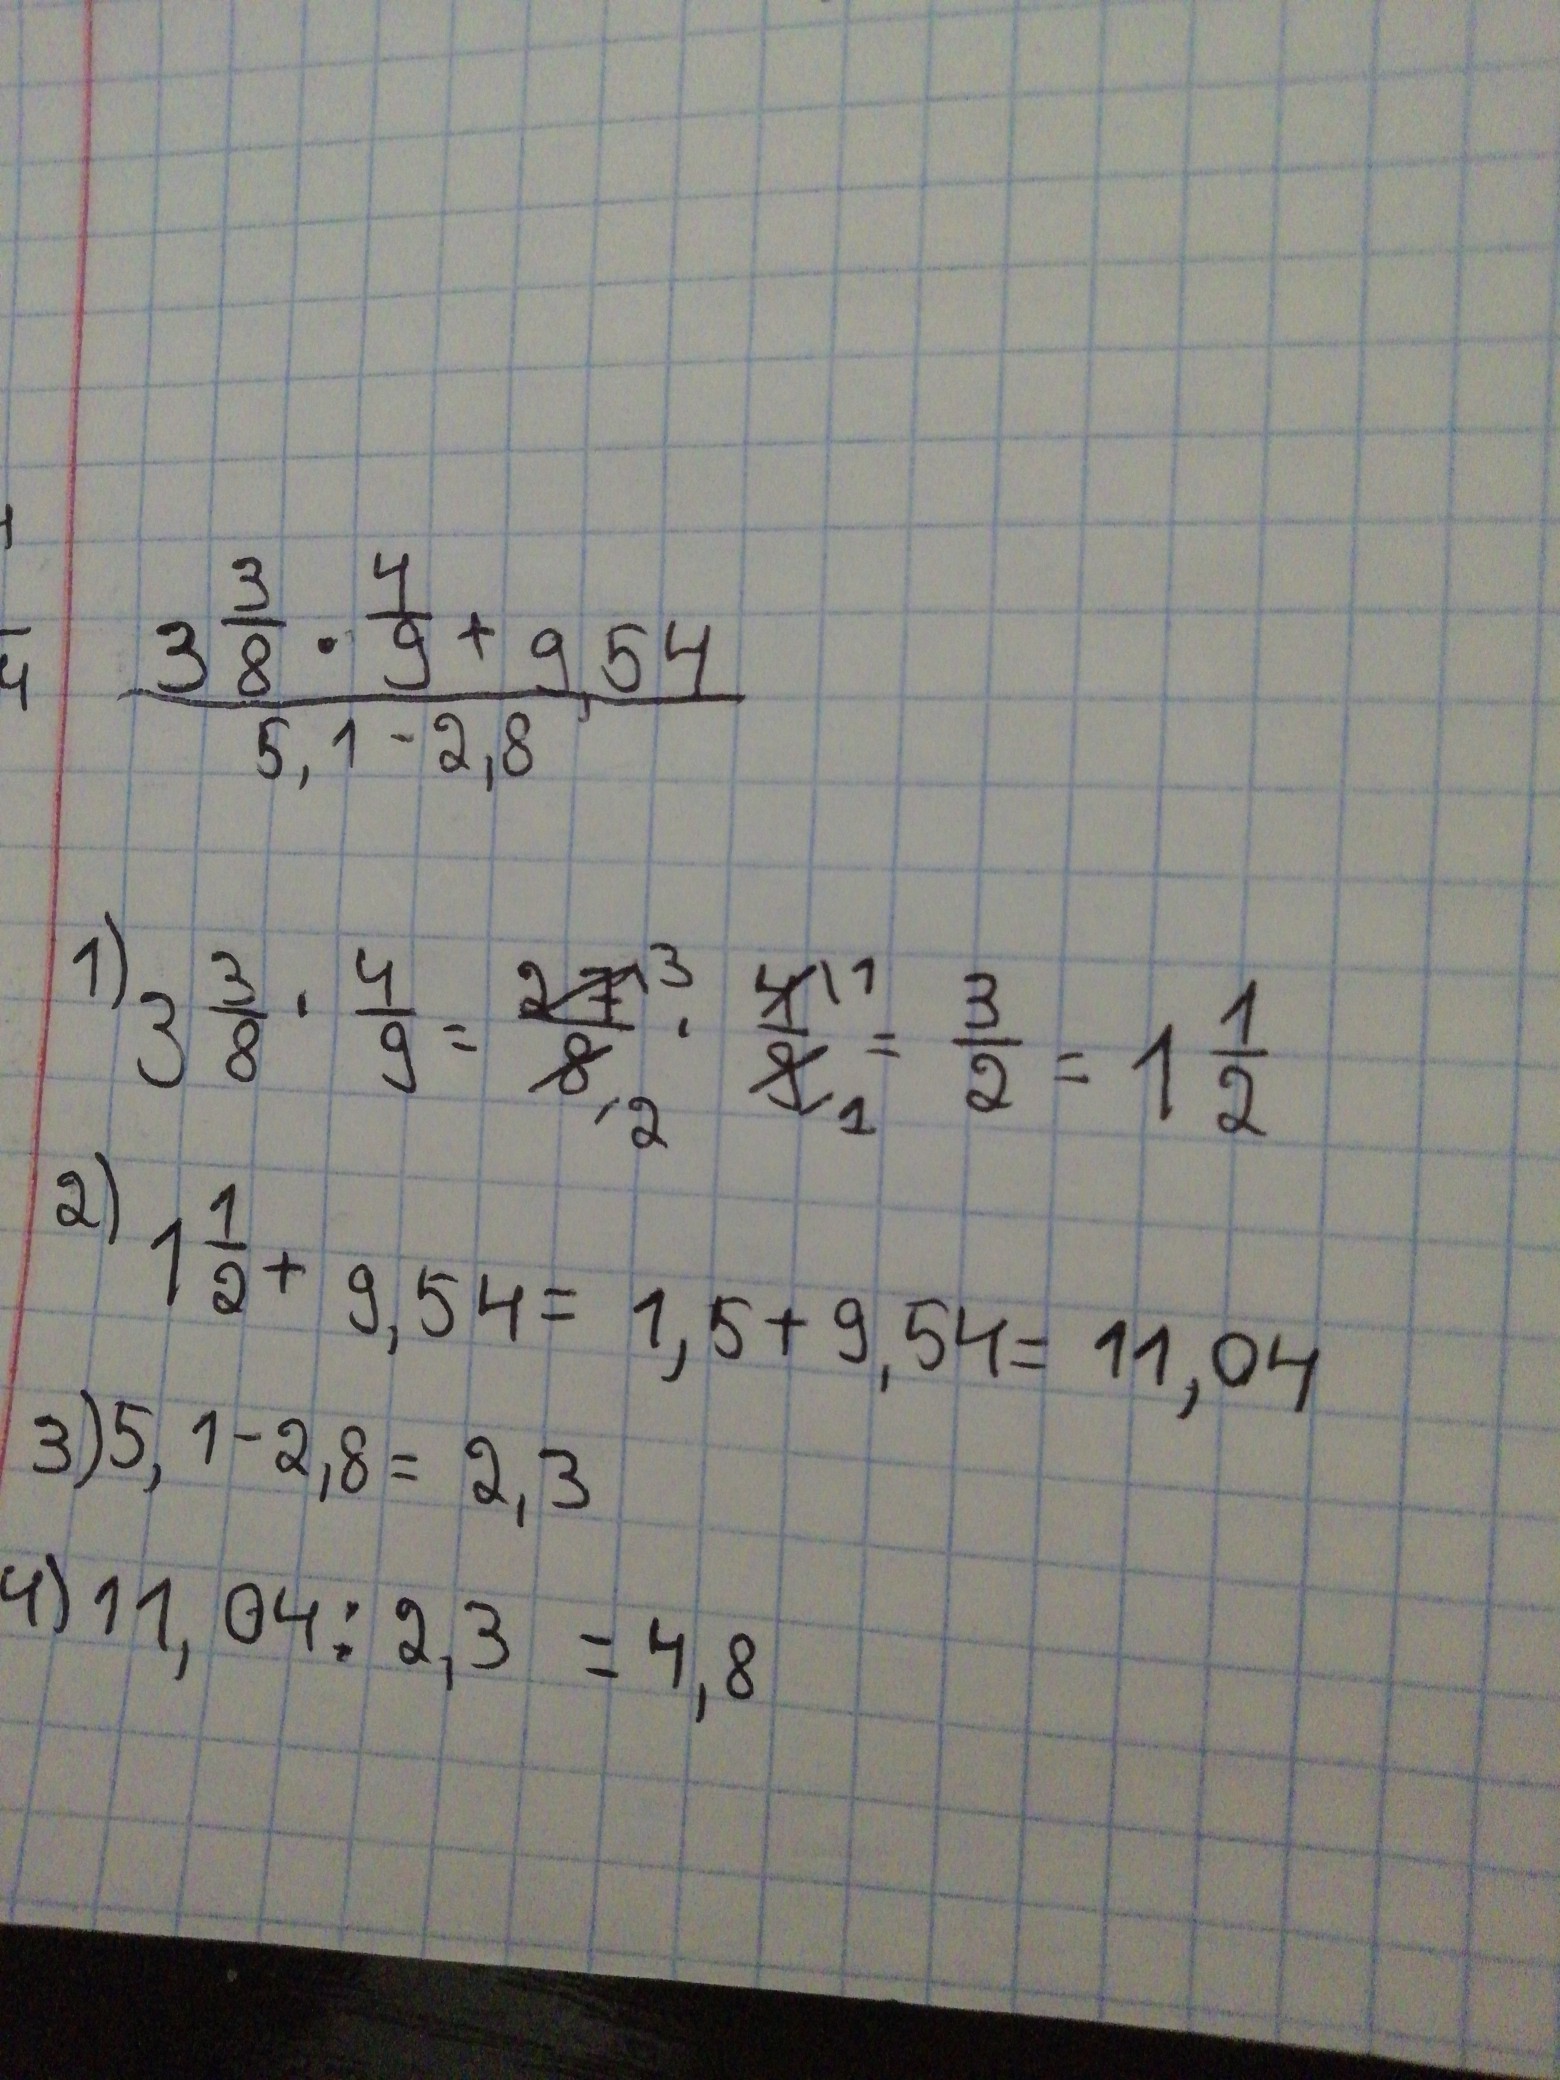 3 3/8 · 4/9 + 9,54
5,1 - 2,8
1) 3 3/8 · 4/9 = 27/8 · 4/9 = 3/2 = 1 1/2
2) 1 1/2 + 9,54 = 1,5 + 9,54 = 11,04
3) 5,1 - 2,8 = 2,3
4) 11,04 : 2,3 = 4,8